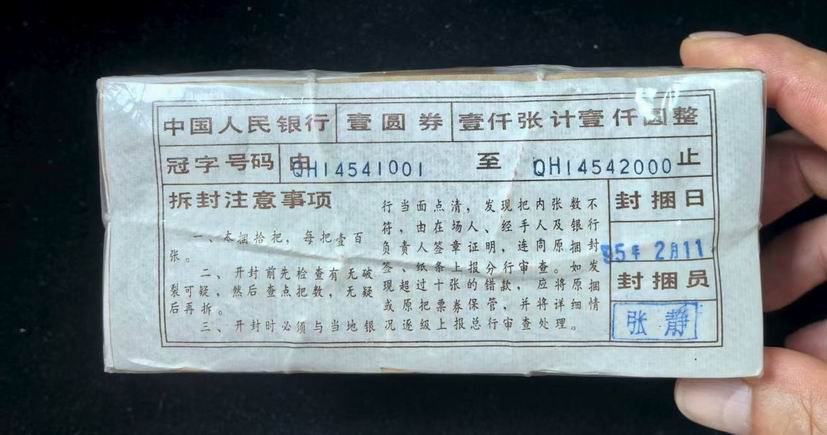 中国人民银行 壹圆券 壹仟张计壹仟圆整
冠字号码 由QH14541001 至 QH14542000止
拆封注意事项
一、本捆拾把，每把壹百
张。
二、开封前先检查有无破
裂可疑，然后查点把数，无疑
后再拆。
三、开封时必须与当地银
行当面点清，发现把内张数不
符，由在场人、经手人及银行
负责人签章证明，连向原捆封
签、纸条上报分行审查。如发
现超过十张的错款，应将原捆
或原把票券保管，并将详细情
况逐级上报总行审查处理。
封捆日
95年2月11
封捆员
张静